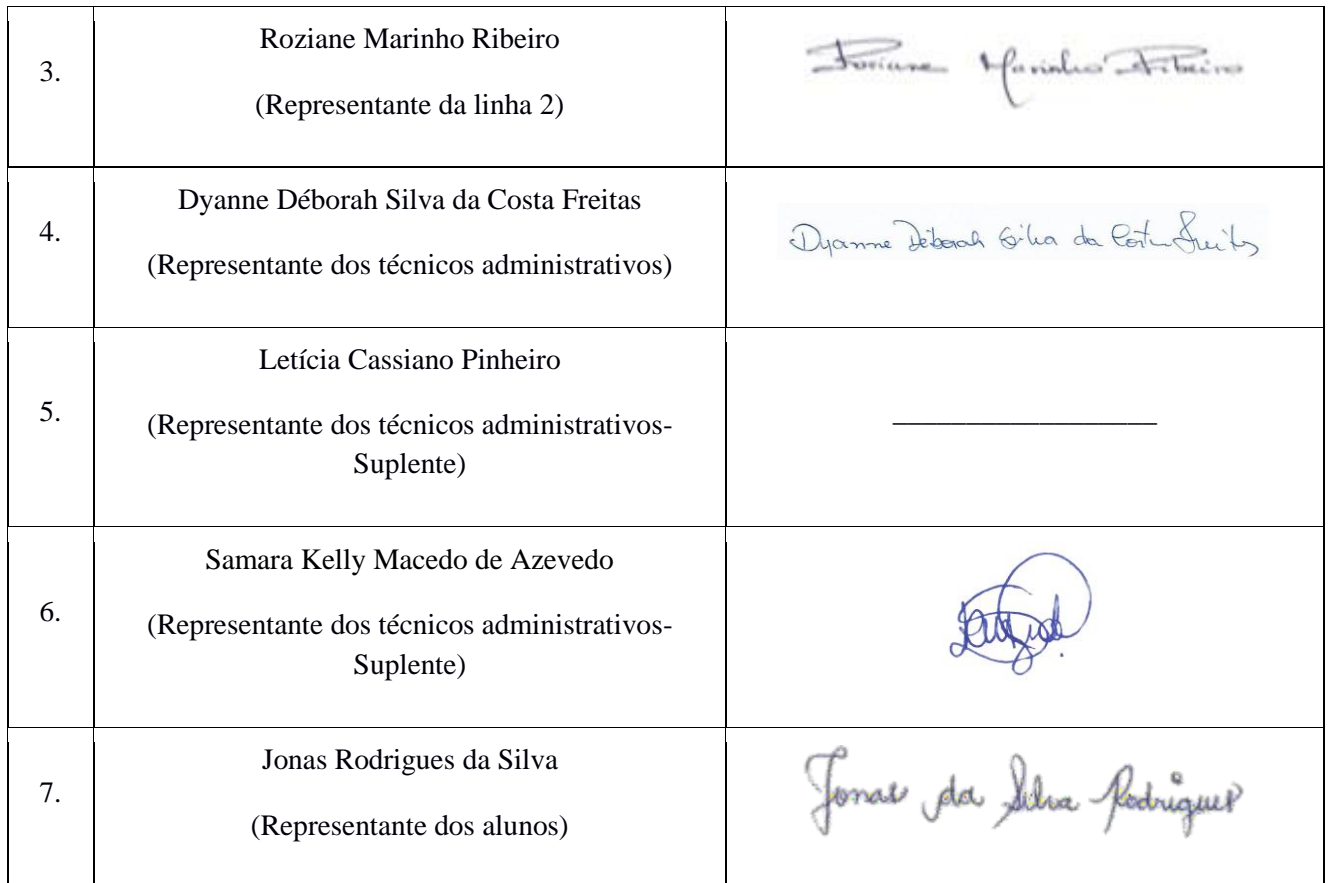 3.
Roziane Marinho Ribeiro
(Representante da linha 2)
Roziane Marinho Ribeiro
4.
Dyanne Déborah Silva da Costa Freitas
(Representante dos técnicos administrativos)
Dyanne Déborah Silva da Costa Freitas
5.
Letícia Cassiano Pinheiro
(Representante dos técnicos administrativos-
Suplente)
__________________
6.
Samara Kelly Macedo de Azevedo
(Representante dos técnicos administrativos-
Suplente)
7.
Jonas Rodrigues da Silva
(Representante dos alunos)
Jonas da Silva Rodrigues